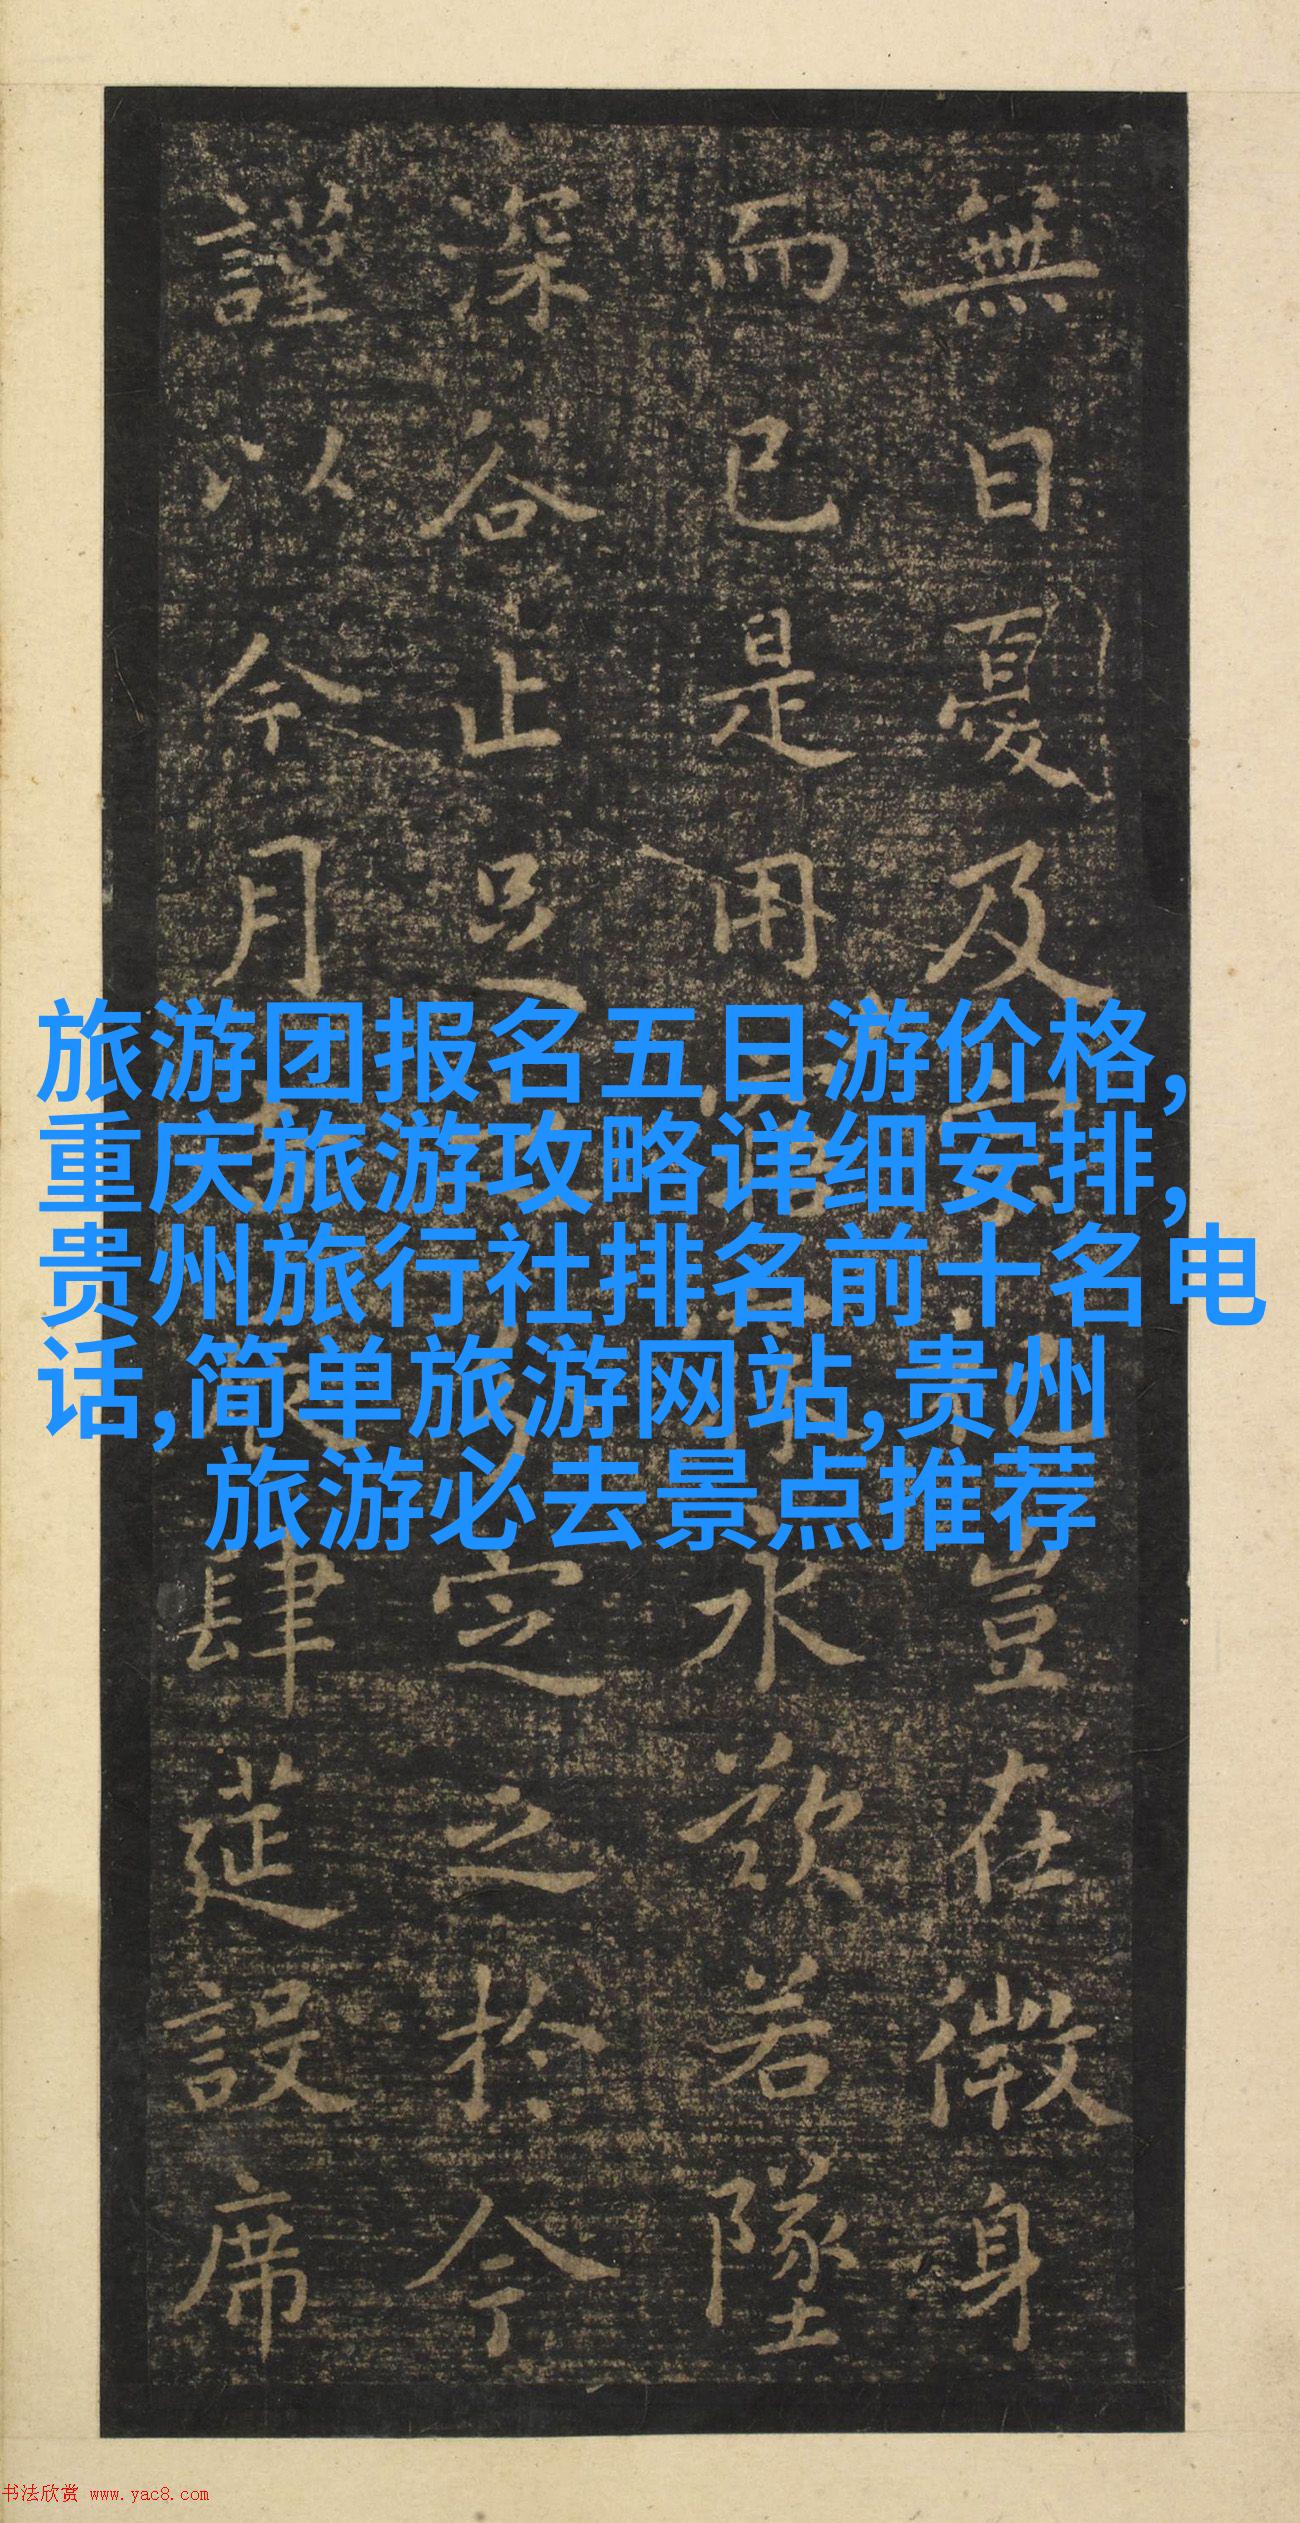 無日憂及豈在微身
而已是用永歎若墜
深谷止足定之於今
謹以今月肆筵設席
旅游团报名五日游价格,
重庆旅游攻略详细安排,
贵州旅行社排名前十名电
话,简单旅游网站,贵州
旅游必去景点推荐
书法欣赏 www.yac8.com